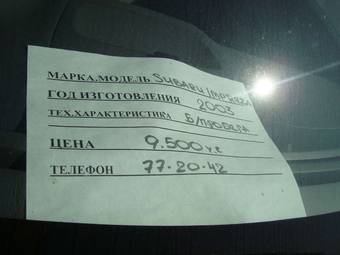 МАРКА.МОДЕЛЬ SUBARU IMPREZA
ГОД ИЗГОТОВЛЕНИЯ 2003
ТЕХ.ХАРАКТЕРИСТИКА Б/ПРОБЕГА
ЦЕНА 9.500 у.е
ТЕЛЕФОН 77-20-42